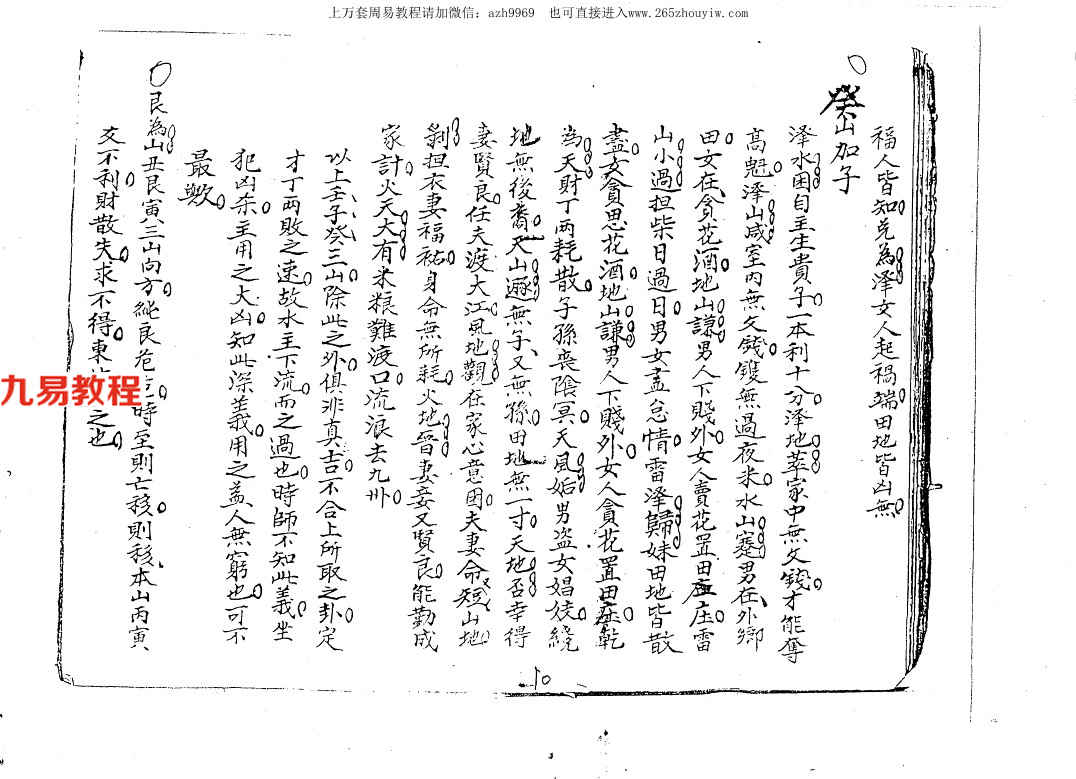 上万套周易教程请加微信：azh9969 也可直接进入www.265zhouyiw.com
福人皆知兑為澤女人起禍端田地皆凶無
癸山加子
泽水困自主生貴子一本利十分泽地萃家中無文錢才能奪
高魁泽山咸室内無文錢鑊無過夜米水山蹇男在外鄉
田女在貪花酒地山謙男人下賤外女人賣花置田庄雷
山小過担柴日過日男女盖怠情雷泽歸妹田地皆散
盡女貪思花酒地山謙男人下賤外女人貪花置田庄乾
為天財丁两耗散子孫喪陰冥天風姤男盗女娼妓繞
地無後裔天山遯無子又無孫田地無一寸天地否幸得
妻賢良任夫渡大江風地觀在家心意困夫妻命短山地
剝担衣妻福祐身命無所耗火地晉妻妾又賢良能勤成
家計火天大有米粮難渡口流浪去九州
以上壬子癸三山除此之外俱非真吉不合上所取之卦定
才丁两敗之速故水主下流而之過也時師不知此義坐
犯凶杀主用之大凶知此深義用之益人無窮也可不
最歟
艮為山丑艮寅三山向方純良危 時至則亡移則移本山丙寅
交不利財散失求不得東 之也
九易教程
10